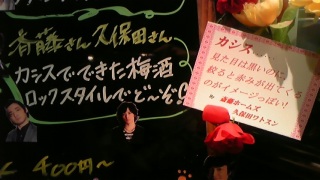 斉藤さん 久保田さん
カシスでできた梅酒
ロックスタイルでど〜ぞ!!
400円〜
カシス
見た目は黒いのに
絞ると赤みが出てくる
のがイメージっぽい!
by 斉藤ホームズ
久保田ワトスン